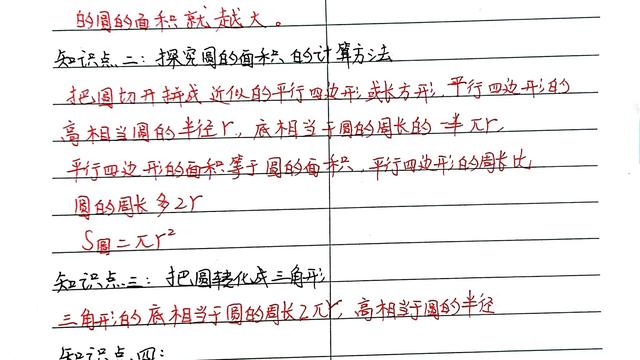 的圆的面积就越大。
知识点二：探究圆的面积的计算方法
把圆切开拼成近似的平行四边形或长方形，平行四边形的
高相当圆的半径r，底相当于圆的周长的一半πr，
平行四边形的面积等于圆的面积，平行四边形的周长比
圆的周长多2r
S圆=πr²
知识点三：把圆转化成三角形
三角形的底相当于圆的周长2πr，高相当于圆的半径
知识点四：